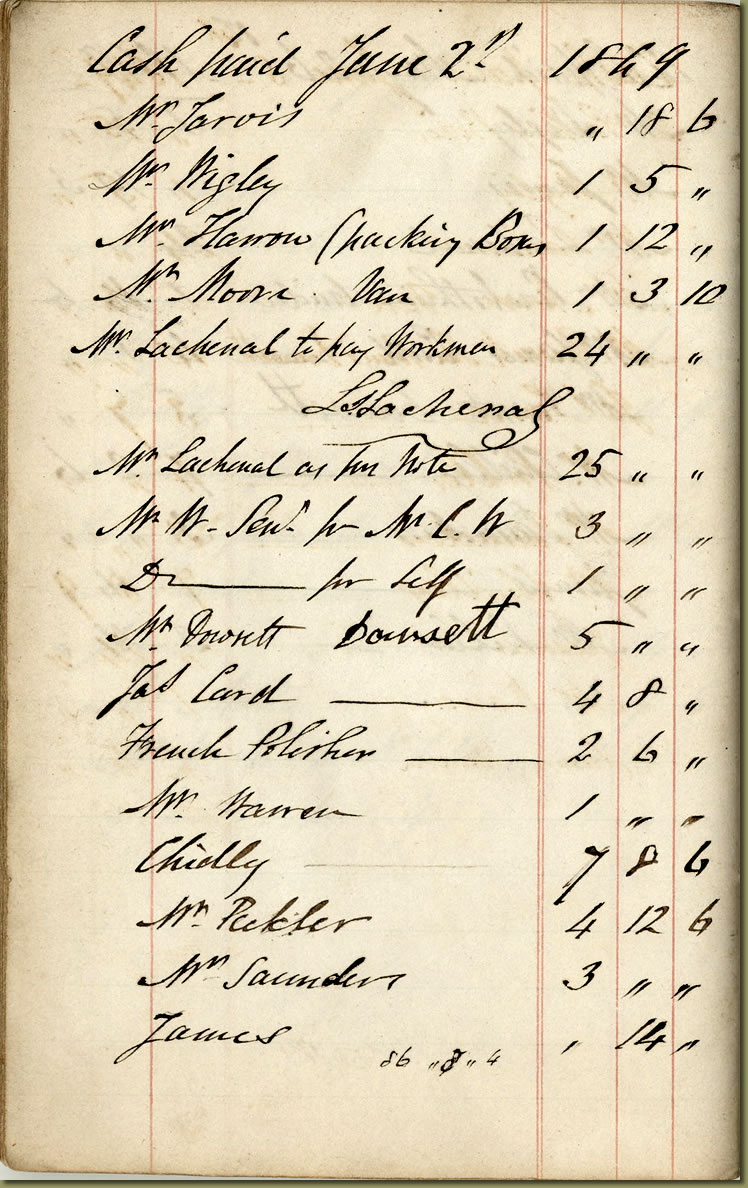 Cash paid June 2nd 1869
Mr. Jarvis " 18 6
Mr. Wigley 1 5 "
Mr. Harrow (packing Boxes 1 12 "
Mr. Moore Van 1 3 10
Mr. Lachenal to pay Workmen 24 " "
Ls. Lachenal
Mr. Lachenal as per Note 25 " "
Mr. W. Senr. for Mr. C. W 3 " "
Do for Self 1 " "
Mr. Dowsett Dowsett 5 " "
Jas Card 4 8 "
French Polisher 2 6 "
Mr. Warren 1 " "
Chidly 7 8 6
Mr. Peckler 4 12 6
Mr. Saunders 3 " "
James " 14 "
86 " 8 " 4